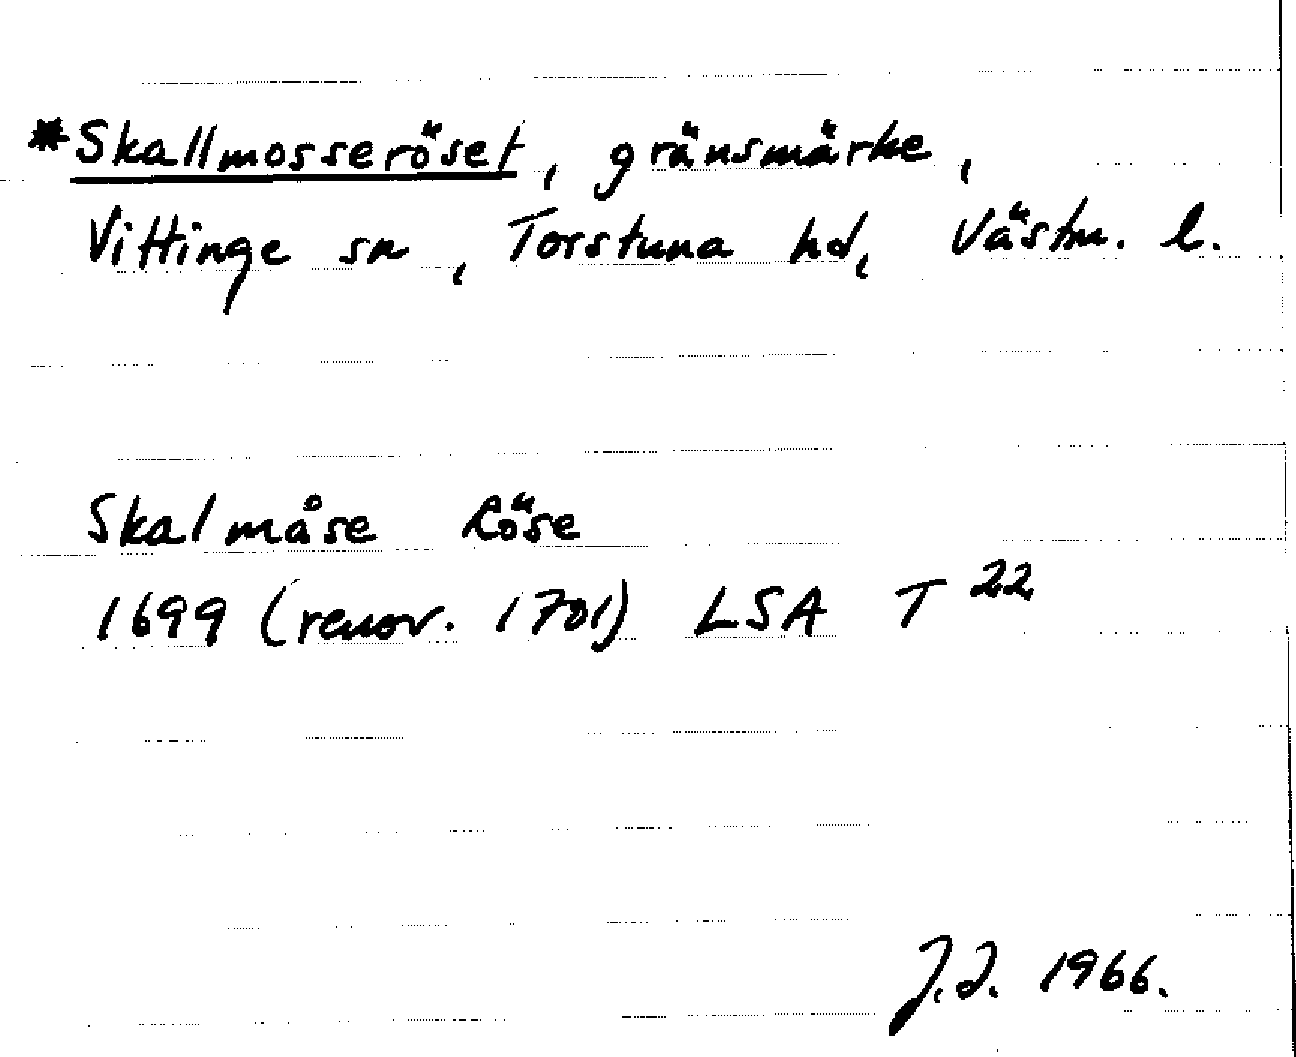 *Skallmosseröset, gränsmärke,
Vittinge sn, Torstuna hd, Västm. l.
Skalmåse Röse
1699 (renov. 1701) LSA T 22
J.J. 1966.